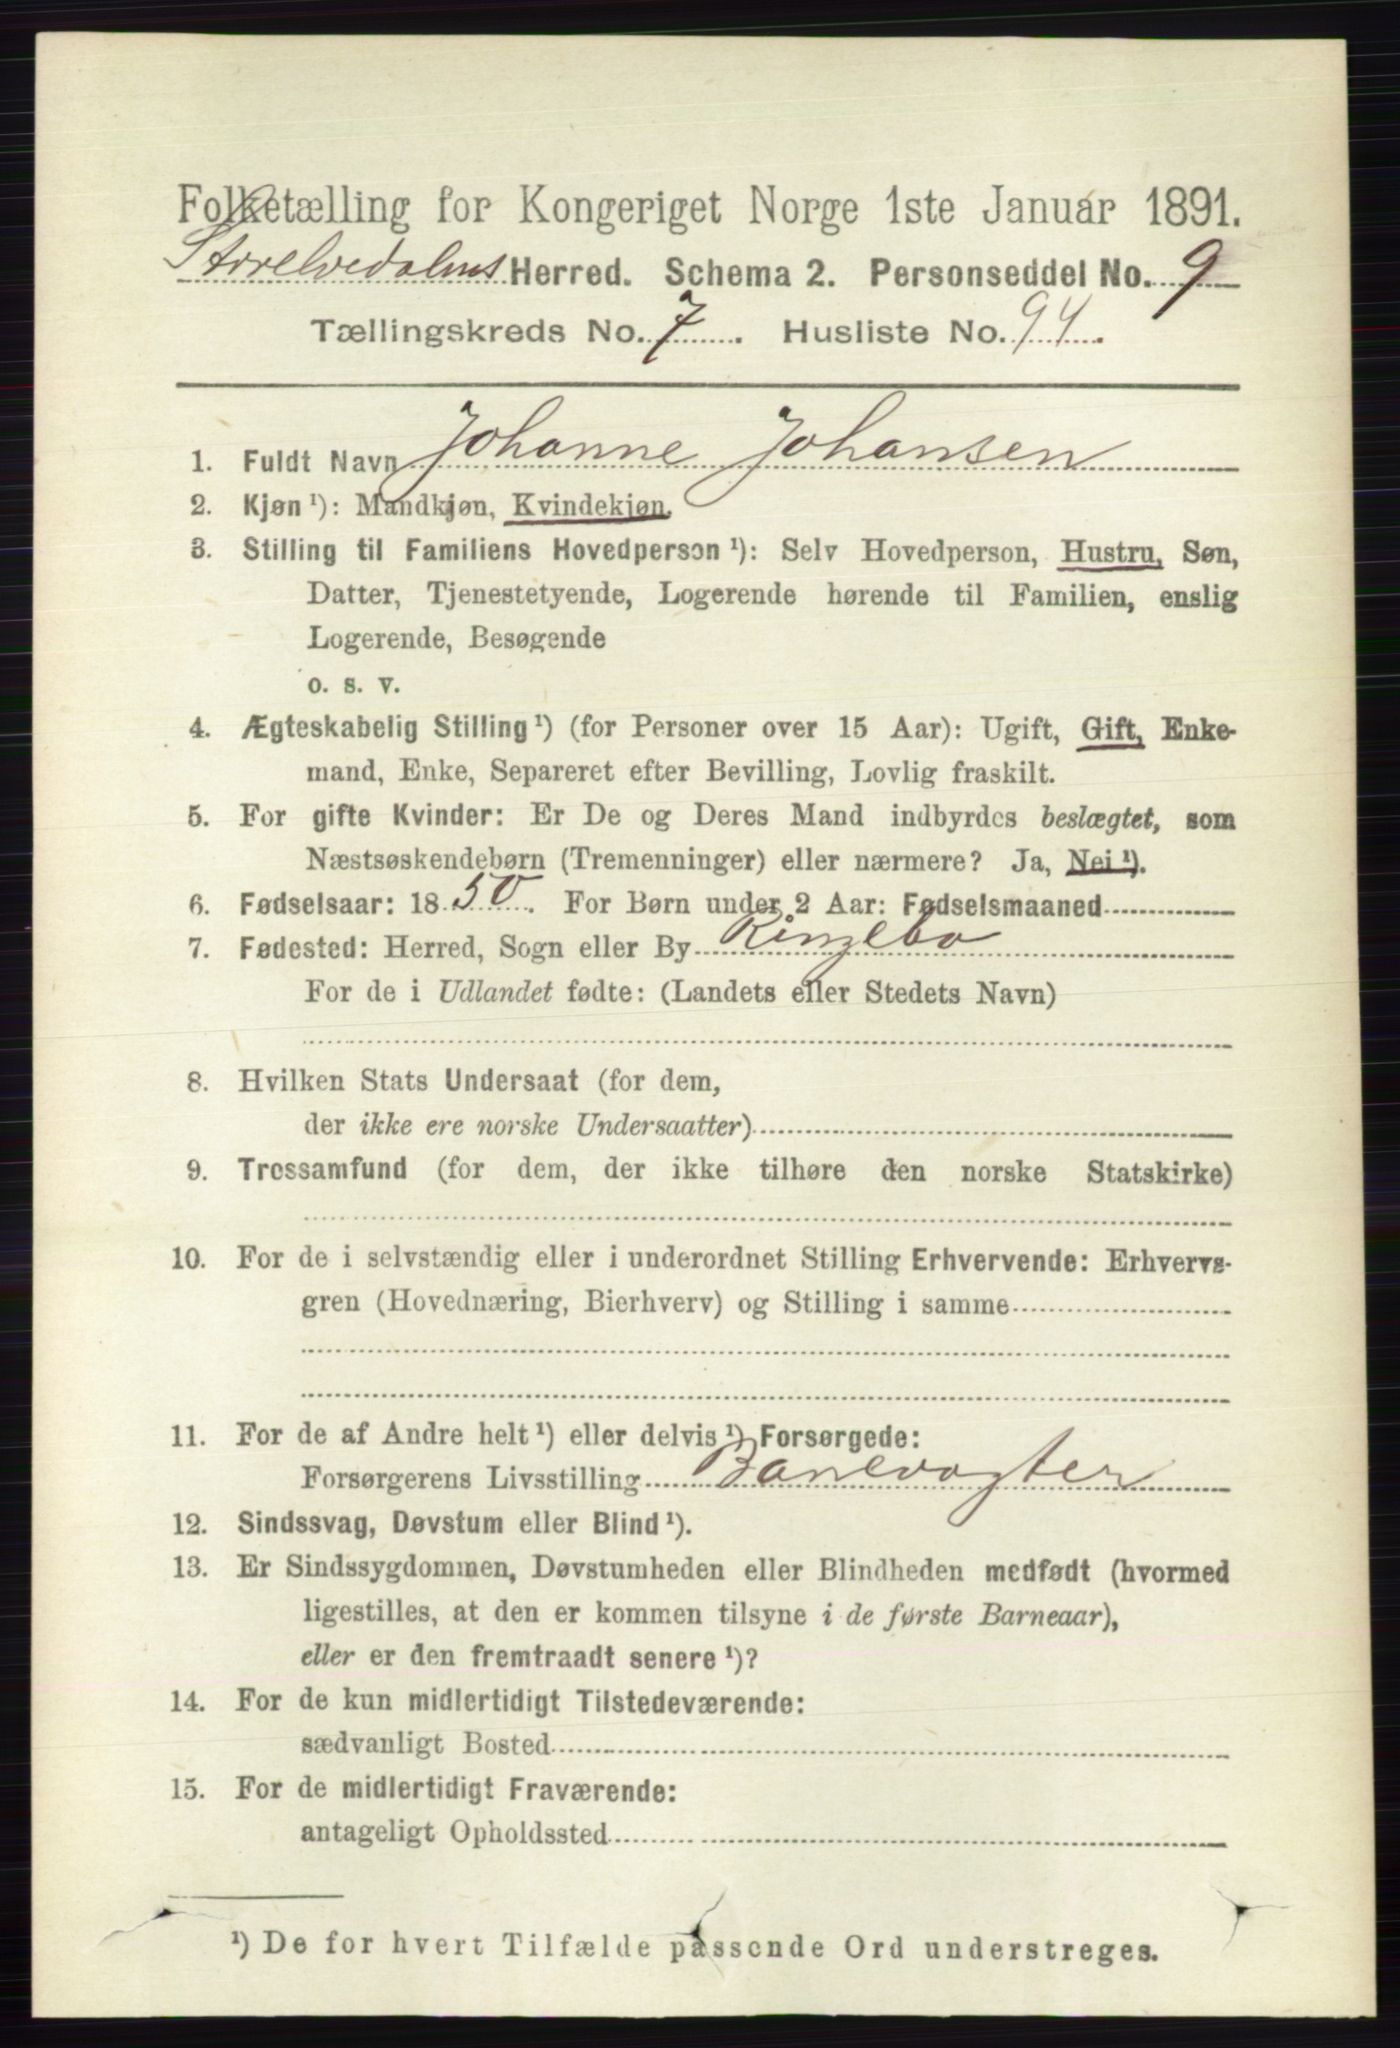 Folketælling for Kongeriget Norge 1ste Januar 1891.
Storelvedalens Herred. Schema 2. Personseddel No. 9
Tællingskreds No. 7. Husliste No. 94.
1. Fuldt Navn Johanne Johansen
2. Kjøn ¹): Mandkjøn, Kvindekjøn.
3. Stilling til Familiens Hovedperson ¹): Selv Hovedperson, Hustru, Søn,
Datter, Tjenestetyende, Logerende hørende til Familien, enslig
Logerende, Besøgende
o. s. v.
4. Ægteskabelig Stilling ¹) (for Personer over 15 Aar): Ugift, Gift, Enke-
mand, Enke, Separeret efter Bevilling, Lovlig fraskilt.
5. For gifte Kvinder: Er De og Deres Mand indbyrdes beslægtet, som
Næstsøskendebørn (Tremenninger) eller nærmere? Ja, Nei ¹).
6. Fødselsaar: 1850. For Børn under 2 Aar: Fødselsmaaned
7. Fødested: Herred, Sogn eller By Ringebo
For de i Udlandet fødte: (Landets eller Stedets Navn)
8. Hvilken Stats Undersaat (for dem,
der ikke ere norske Undersaatter)
9. Trossamfund (for dem, der ikke tilhøre den norske Statskirke)
10. For de i selvstændig eller i underordnet Stilling Erhvervende: Erhvervs-
gren (Hovednæring, Bierhverv) og Stilling i samme
11. For de af Andre helt ¹) eller delvis ¹) Forsørgede:
Forsørgerens Livsstilling Banevogter
12. Sindssvag, Døvstum eller Blind ¹).
13. Er Sindssygdommen, Døvstumheden eller Blindheden medfødt (hvormed
ligestilles, at den er kommen tilsyne i de første Barneaar),
eller er den fremtraadt senere ¹)?
14. For de kun midlertidigt Tilstedeværende:
sædvanligt Bosted
15. For de midlertidigt Fraværende:
antageligt Opholdssted
¹) De for hvert Tilfælde passende Ord understreges.